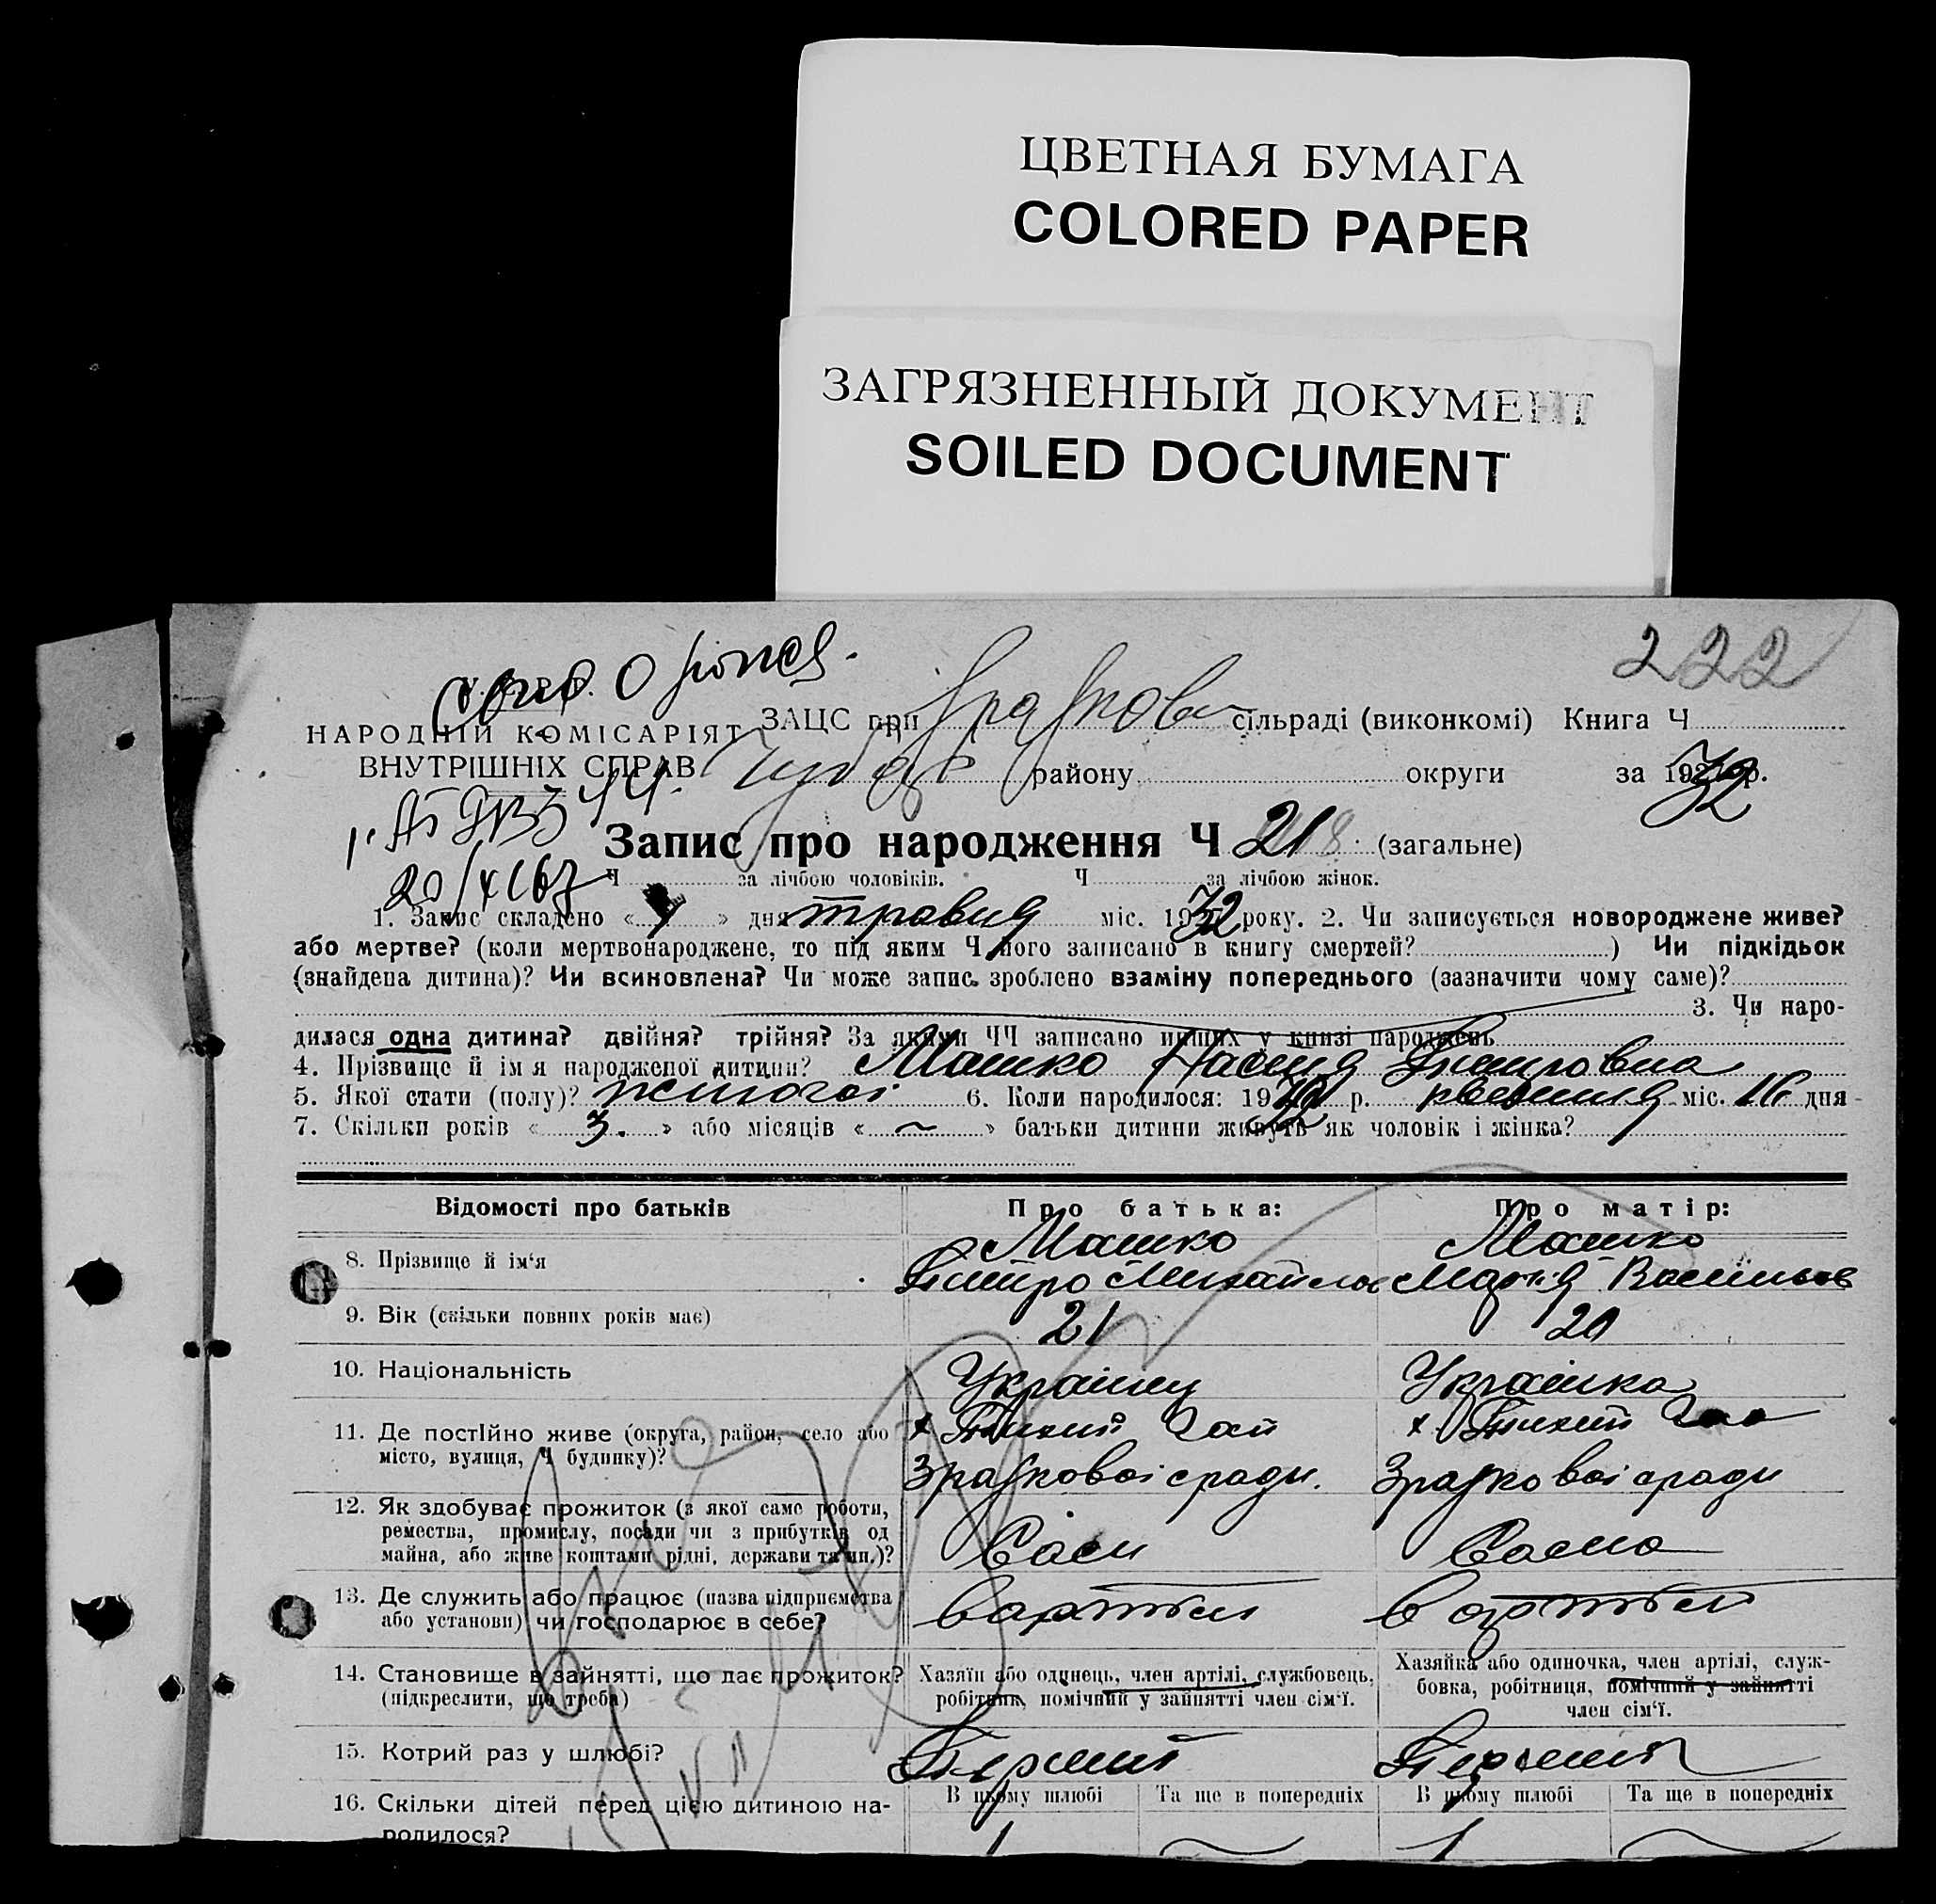 ЦВЕТНАЯ БУМАГА
COLORED PAPER
ЗАГРЯЗНЕННЫЙ ДОКУМЕНТ
SOILED DOCUMENT
222
НАРОДНІЙ КОМІСАРІЯТ
ВНУТРІШНІХ СПРАВ
ЗАЦС при сільраді (виконкомі) Книга Ч
району округи за 1932 р.
Запис про народження Ч 218 (загальне)
Ч за лічбою чоловіків. Ч за лічбою жінок.
1. Запис складено « » дня травня міс. 1932 року. 2. Чи записується новороджене живе?
або мертве? (коли мертвонароджене, то під яким Ч його записано в книгу смертей? ) Чи підкідьок
(знайдена дитина)? Чи всиновлена? Чи може запис зроблено взаміну попереднього (зазначити чому саме)?
3. Чи наро-
дилася одна дитина? двійня? трійня? За якими ЧЧ записано инших у книзі народжень
4. Прізвище й ім'я народженої дитини? Машко
5. Якої стати (полу)? жіночої 6. Коли народилося: 19 р. міс. 16 дня
7. Скільки років « 3. » або місяців « ~ » батьки дитини живуть як чоловік і жінка?
Відомості про батьків Про батька: Про матір:
8. Прізвище й ім‘я Машко Машко
Марія
9. Вік (скільки повних років має) 21 20
10. Національність Українец Українка
11. Де постійно живе (округа, район, село або х Тихий Гай х Тихий Гай
місто, вулиця, Ч будинку)?
12. Як здобуває прожиток (з якої саме роботи,
ремества, промислу, посади чи з прибутків од
майна, або живе коштами рідні, держави та ин.)?
13. Де служить або працює (назва підприємства в артілі в артілі
або установи) чи господарює в себе?
14. Становище в зайнятті, що дає прожиток? Хазяїн або одинець, член артілі, службовець, Хазяйка або одиночка, член артілі, служ-
(підкреслити, що треба) робітник, помічний у зайнятті член сім‘ї. бовка, робітниця, помічний у зайнятті
член сім‘ї.
15. Котрий раз у шлюбі? Перший Перший
16. Скільки дітей перед цією дитиною на- В цьому шлюбі Та ще в попередніх В цьому шлюбі Та ще в попередніх
родилося? 1 ~ 1 ~